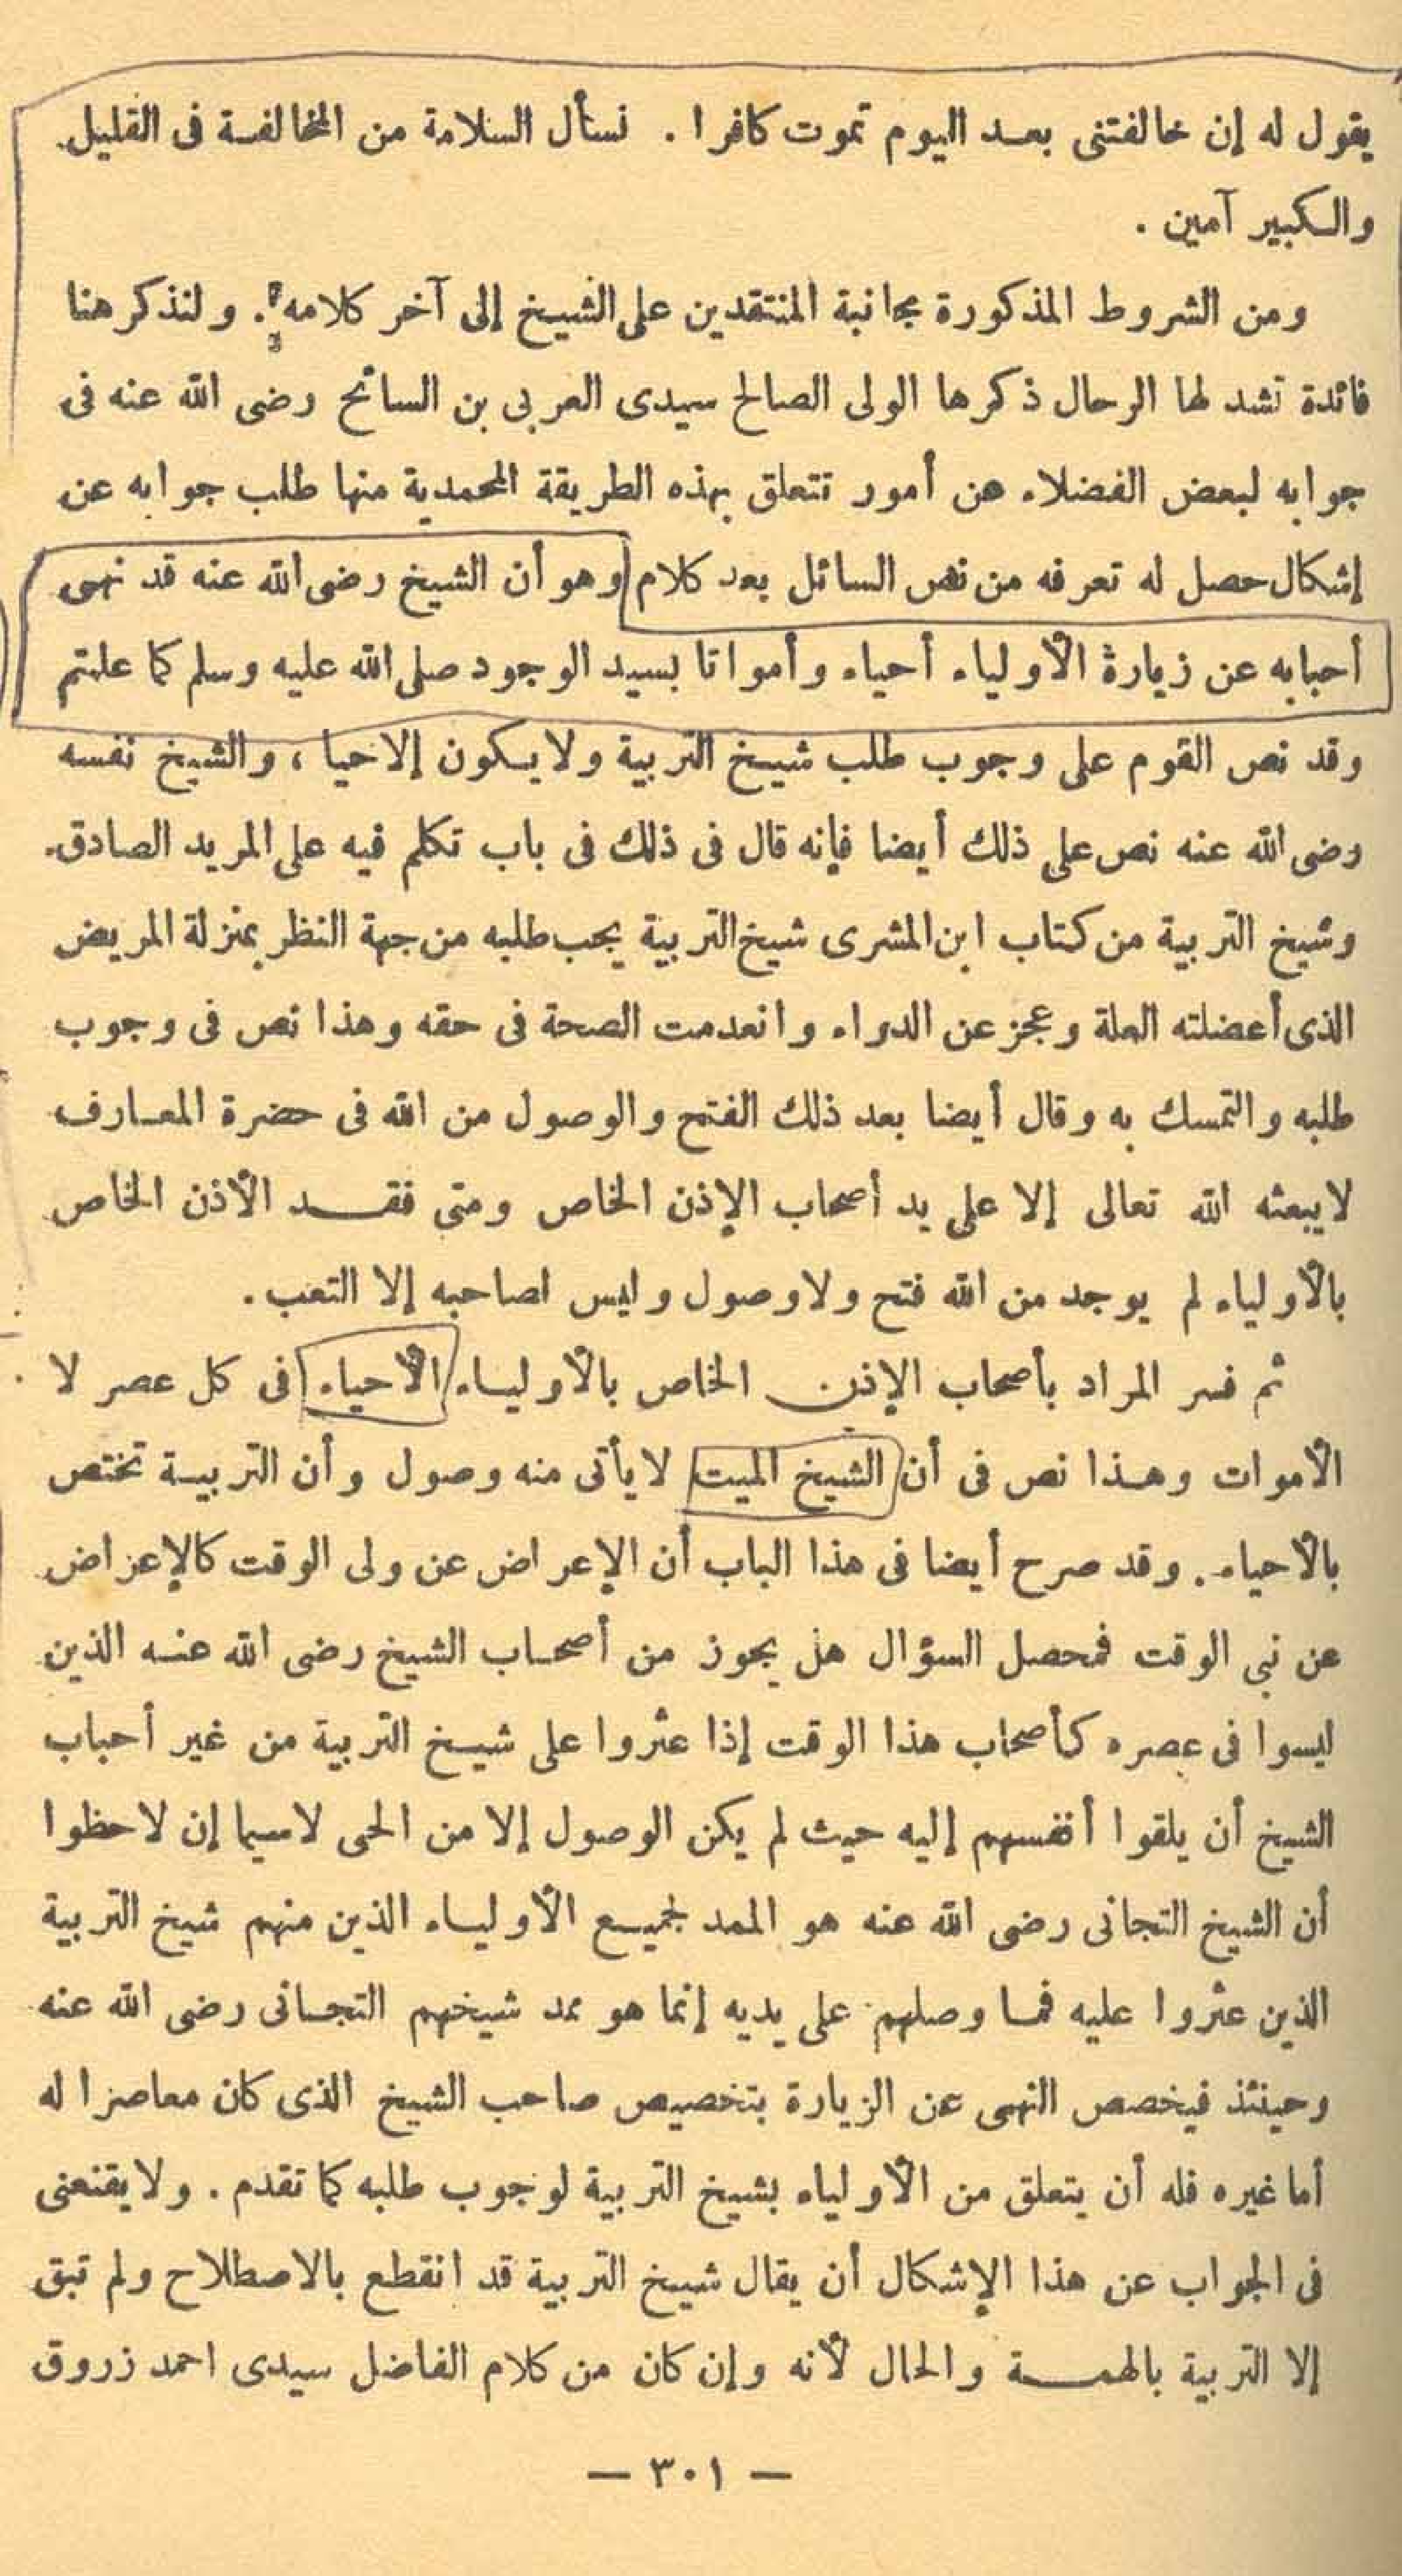 يقول له إن خالفتنى بعد اليوم تموت كافرا . نسأل السلامة من المخالفة فى القليل
والكبير آمين .
ومن الشروط المذكورة مجانبة المنتقدين على الشيخ إلى آخر كلامه . ولنذكر هنا
فائدة تشد لها الرحال ذكرها الولى الصالح سيدى العربى بن السائح رضى الله عنه فى
جوابه لبعض الفضلاء عن أمور تتعلق بهذه الطريقة المحمدية منها طلب جوابه عن
إشكال حصل له تعرفه من نص السائل بعد كلام وهو أن الشيخ رضى الله عنه قد نهى
أحبابه عن زيارة الأولياء أحياء وأمواتا بسيد الوجود صلى الله عليه وسلم كما علمتم
وقد نص القوم على وجوب طلب شيخ التربية ولا يكون إلا حيا ، والشيخ نفسه
رضى الله عنه نص على ذلك أيضا فإنه قال فى ذلك فى باب تكلم فيه على المريد الصادق
وشيخ التربية من كتاب ابن المشرى شيخ التربية يجب طلبه من جهة النظر بمنزلة المريض
الذى أعضلته العلة وعجز عن الدواء وانعدمت الصحة فى حقه وهذا نص فى وجوب
طلبه والتمسك به وقال أيضا بعد ذلك الفتح والوصول من الله فى حضرة المعارف
لا يبعثه الله تعالى إلا على يد أصحاب الإذن الخاص ومتى فقد الأذن الخاص
بالأولياء لم يوجد من الله فتح ولا وصول وليس لصاحبه إلا التعب .
ثم فسر المراد بأصحاب الإذن الخاص بالأولياء الأحياء فى كل عصر لا
الأموات وهذا نص فى أن الشيخ الميت لا يأتى منه وصول وأن التربية تختص
بالأحياء . وقد صرح أيضا فى هذا الباب أن الإعراض عن ولى الوقت كالإعراض
عن نبى الوقت فمحصل السؤال هل يجوز من أصحاب الشيخ رضى الله عنه الذين
ليسوا فى عصره كأصحاب هذا الوقت إذا عثروا على شيخ التربية من غير أحباب
الشيخ أن يلقوا أنفسهم إليه حيث لم يكن الوصول إلا من الحى لاسيما إن لاحظوا
أن الشيخ التجانى رضى الله عنه هو الممد لجميع الأولياء الذين منهم شيخ التربية
الذين عثروا عليه فما وصلهم على يديه إنما هو ممد شيخهم التجانى رضى الله عنه
وحينئذ فيخصص النهى عن الزيارة بتخصيص صاحب الشيخ الذى كان معاصرا له
أما غيره فله أن يتعلق من الأولياء بشيخ التربية لوجوب طلبه كما تقدم . ولا يقنعنى
فى الجواب عن هذا الإشكال أن يقال شيخ التربية قد انقطع بالاصطلاح ولم تبق
إلا التربية بالهمة والحال لأنه وإن كان من كلام الفاضل سيدى احمد زروق
— ٣٠١ —